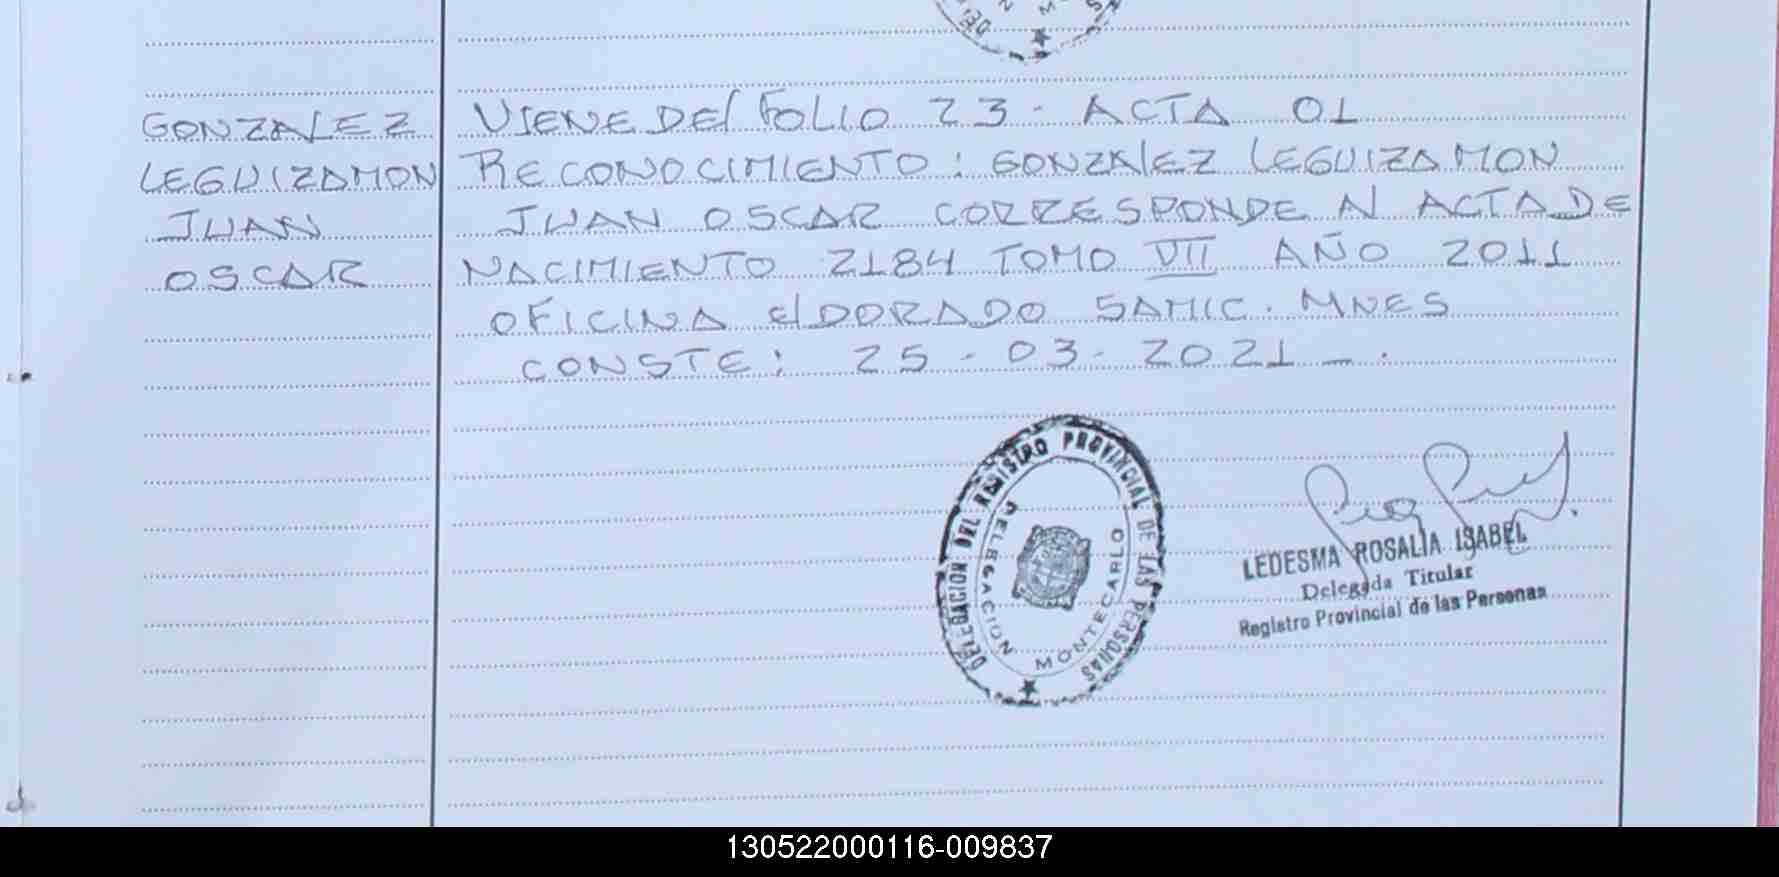 GONZALEZ
LEGUIZAMON
JUAN
OSCAR
VIENE DEL FOLIO 23 - ACTA 01
RECONOCIMIENTO: GONZALEZ LEGUIZAMON
JUAN OSCAR CORRESPONDE AL ACTA DE
NACIMIENTO 2184 TOMO VII AÑO 2011
OFICINA ELDORADO SAMIC. MNES
CONSTE: 25-03-2021-.
DELEGACION DEL REGISTRO PROVINCIAL DE LAS PERSONAS
DELEGACION MONTECARLO
LEDESMA ROSALIA ISABEL
Delegada Titular
Registro Provincial de las Personas
130522000116-009837